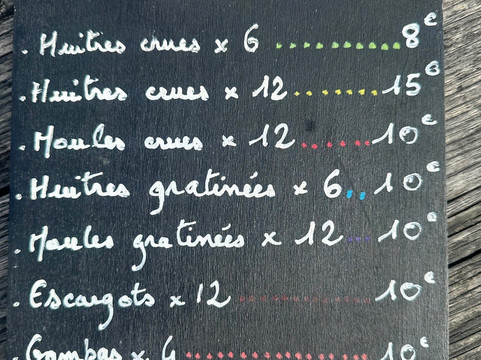 . Huitres crues x 6 .......... 8€
. Huitres crues x 12 ........ 15€
. Moules crues x 12 ...... 10€
. Huitres gratinées x 6 .. 10€
. Moules gratinées x 12 ... 10€
. Escargots x 12 .............. 10€
. Gambas x 4 .................. 10€